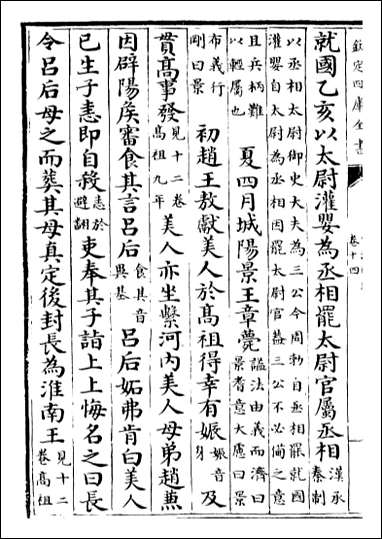 欽定四庫全書
卷十四
就國乙亥以太尉灌嬰為丞相罷太尉官屬丞相漢承秦制
以丞相太尉御史大夫為三公今周勃自丞相罷就國
灌嬰自太尉為丞相因罷太尉官蓋三公不必備之意
且兵柄難以輕屬也 夏四月城陽景王章薨諡法由義而濟曰景耆意大慮曰景
布義行剛曰景 初趙王敖獻美人於高祖得幸有娠娠音身及
貫高事發見十二卷高祖九年美人亦坐繫河内美人母弟趙兼
因辟陽侯審食其言吕后食其音異基吕后妬弗肯白美人
已生子恚即自殺恚於避翻吏奉其子詣上上悔名之曰長
令吕后母之而葬其母真定後封長為淮南王見十二卷高祖